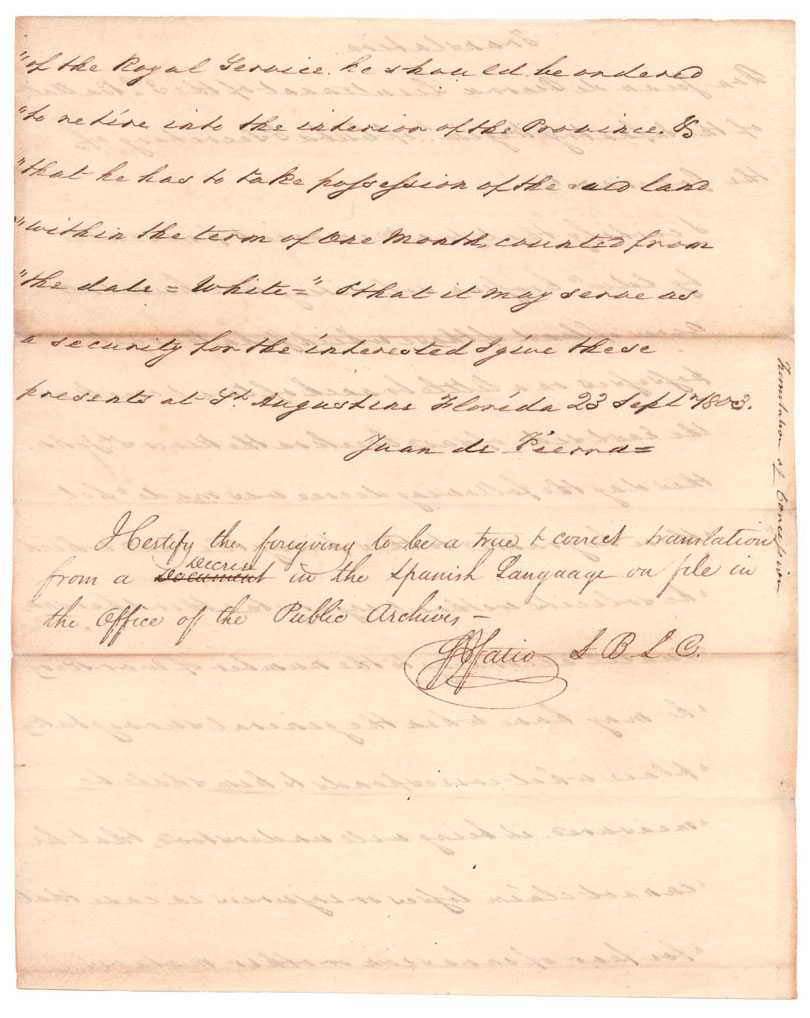 "of the Royal Service he should be ordered
"to retire into the interior of the Province. &
"that he has to take possession of the said land
"within the term of One Month, counted from
"the date = White =" & that it may serve as
a security for the interested I give these
presents at St. Augustine Florida 23 Septr. 1803.
Juan de Pierra =
I Certify the foregoing to be a true & correct translation
from a Document Decree in the Spanish Language on file in
the Office of the Public Archives —
S B L C.
Translation of Concession